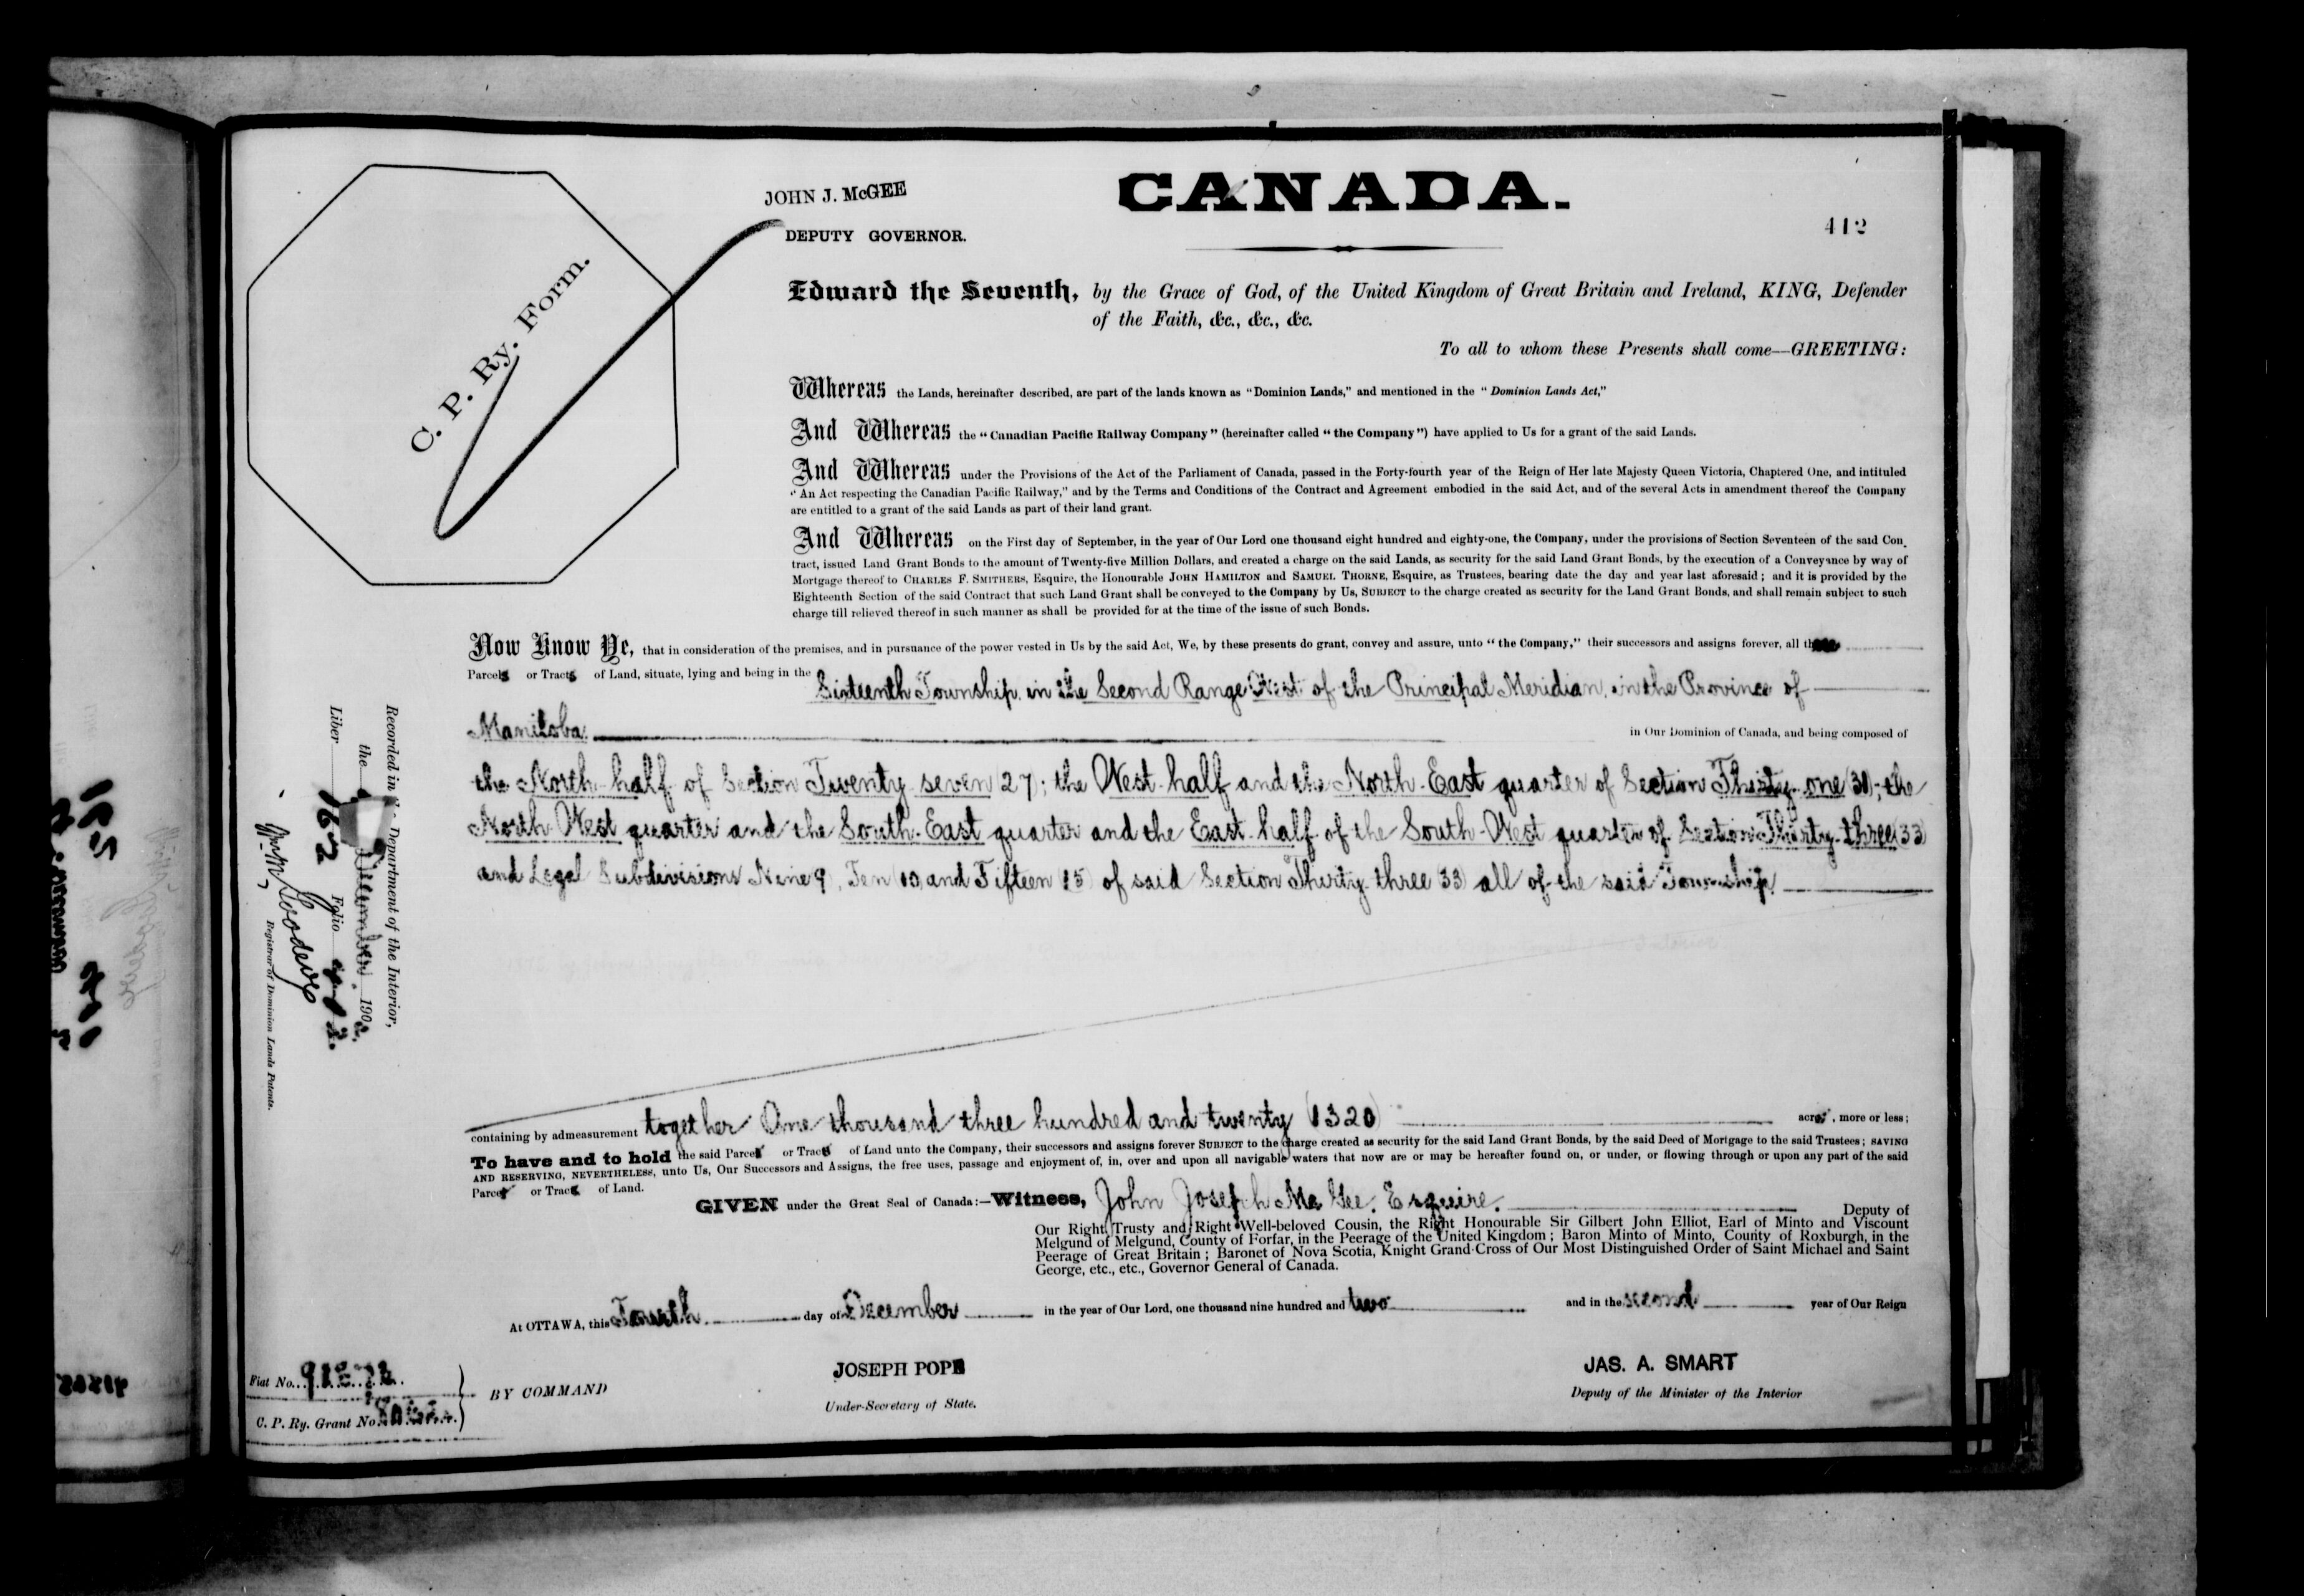 JOHN J. McGEE
CANADA.
DEPUTY GOVERNOR.
412
C. P. Ry. Form.
Edward the Seventh, by the Grace of God, of the United Kingdom of Great Britain and Ireland, KING, Defender
of the Faith, &c., &c., &c.
To all to whom these Presents shall come—GREETING:
Whereas the Lands, hereinafter described, are part of the lands known as "Dominion Lands," and mentioned in the "Dominion Lands Act,"
And Whereas the "Canadian Pacific Railway Company" (hereinafter called "the Company") have applied to Us for a grant of the said Lands.
And Whereas under the Provisions of the Act of the Parliament of Canada, passed in the Forty-fourth year of the Reign of Her late Majesty Queen Victoria, Chaptered One, and intituled
"An Act respecting the Canadian Pacific Railway," and by the Terms and Conditions of the Contract and Agreement embodied in the said Act, and of the several Acts in amendment thereof the Company
are entitled to a grant of the said Lands as part of their land grant.
And Whereas on the First day of September, in the year of Our Lord one thousand eight hundred and eighty-one, the Company, under the provisions of Section Seventeen of the said Con-
tract, issued Land Grant Bonds to the amount of Twenty-five Million Dollars, and created a charge on the said Lands, as security for the said Land Grant Bonds, by the execution of a Conveyance by way of
Mortgage thereof to CHARLES F. SMITHERS, Esquire, the Honourable JOHN HAMILTON and SAMUEL THORNE, Esquire, as Trustees, bearing date the day and year last aforesaid; and it is provided by the
Eighteenth Section of the said Contract that such Land Grant shall be conveyed to the Company by Us, SUBJECT to the charge created as security for the Land Grant Bonds, and shall remain subject to such
charge till relieved thereof in such manner as shall be provided for at the time of the issue of such Bonds.
Now Know Ye, that in consideration of the premises, and in pursuance of the power vested in Us by the said Act, We, by these presents do grant, convey and assure, unto "the Company," their successors and assigns forever, all those
Parcels or Tracts of Land, situate, lying and being in the Sixteenth Township, in the Second Range West of the Principal Meridian, in the Province of
Manitoba in Our Dominion of Canada, and being composed of
the North half of Section Twenty seven (27); the West half and the North-East quarter of Section Thirty-one (31); the
North West quarter and the South-East quarter and the East-half of the South-West quarter of Section Thirty-three (33)
and Legal Subdivisions Nine 9, Ten (10) and Fifteen (15) of said Section Thirty three (33) all of the said Township
containing by admeasurement together One thousand three hundred and twenty (1320) acres, more or less;
To have and to hold the said Parcels or Tracts of Land unto the Company, their successors and assigns forever SUBJECT to the charge created as security for the said Land Grant Bonds, by the said Deed of Mortgage to the said Trustees; SAVING
AND RESERVING, NEVERTHELESS, unto Us, Our Successors and Assigns, the free uses, passage and enjoyment of, in, over and upon all navigable waters that now are or may be hereafter found on, or under, or flowing through or upon any part of the said
Parcels or Tracts of Land.
GIVEN under the Great Seal of Canada:—Witness, John Joseph McGee, Esquire. Deputy of
Our Right Trusty and Right Well-beloved Cousin, the Right Honourable Sir Gilbert John Elliot, Earl of Minto and Viscount
Melgund of Melgund, County of Forfar, in the Peerage of the United Kingdom; Baron Minto of Minto, County of Roxburgh, in the
Peerage of Great Britain; Baronet of Nova Scotia, Knight Grand-Cross of Our Most Distinguished Order of Saint Michael and Saint
George, etc., etc., Governor General of Canada.
At OTTAWA, this Fourth day of December in the year of Our Lord, one thousand nine hundred and two and in the second year of Our Reign
Fiat No.
C. P. Ry. Grant No.
BY COMMAND
JOSEPH POPE
Under-Secretary of State.
JAS. A. SMART
Deputy of the Minister of the Interior
Recorded in Department of the Interior,
the December 1902.
Liber 162 Folio 412.
Registrar of Dominion Lands Patents.